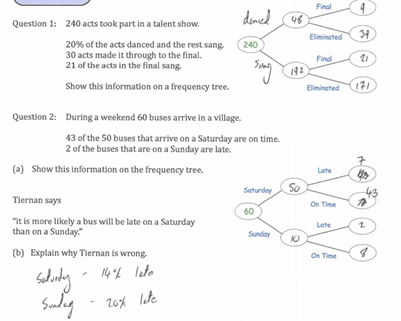 Question 1: 240 acts took part in a talent show.
20% of the acts danced and the rest sang.
30 acts made it through to the final.
21 of the acts in the final sang.
Show this information on a frequency tree.
danced
240
sang
48
192
Final
9
Eliminated
39
Final
21
Eliminated
171
Question 2: During a weekend 60 buses arrive in a village.
43 of the 50 buses that arrive on a Saturday are on time.
2 of the buses that are on a Sunday are late.
(a) Show this information on the frequency tree.
Saturday
60
Sunday
50
10
Late
7
On Time
43
Late
2
On Time
8
Tiernan says
"it is more likely a bus will be late on a Saturday
than on a Sunday."
(b) Explain why Tiernan is wrong.
Saturday - 14% late
Sunday - 20% late